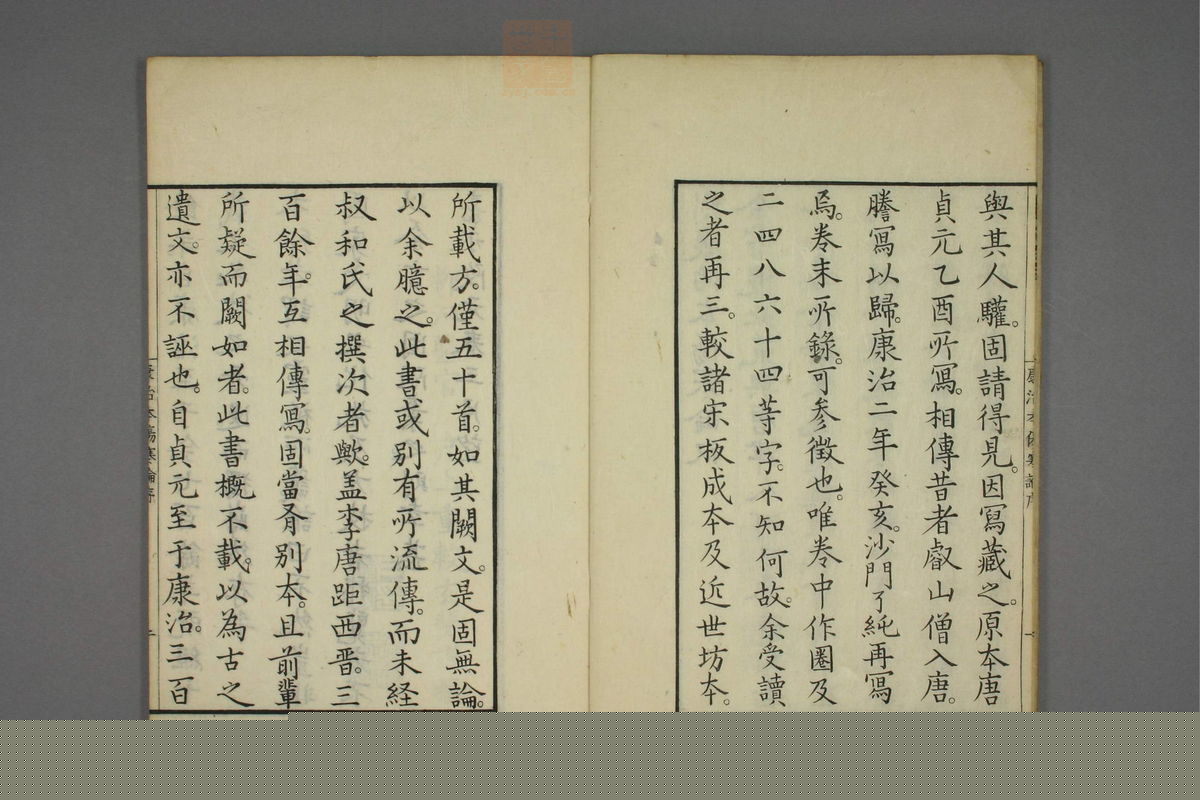 與其人驩。固請得見。因寫藏之。原本唐
貞元乙酉所寫。相傳昔者叡山僧入唐。
謄寫以歸。康治二年癸亥。沙門了純再寫
焉。卷末所錄。可參徵也。唯卷中作圈及
二四八六十四等字。不知何故。余受讀
之者再三。較諸宋板成本及近世坊本。
所載方。僅五十首。如其闕文。是固無論。
以余臆之。此書或別有所流傳。而未経
叔和氏之撰次者歟。盖李唐距西晋。三
百餘年。互相傳寫。固當有別本。且前輩
所疑而闕如者。此書概不載。以為古之
遺文。亦不誣也。自貞元至于康治。三百